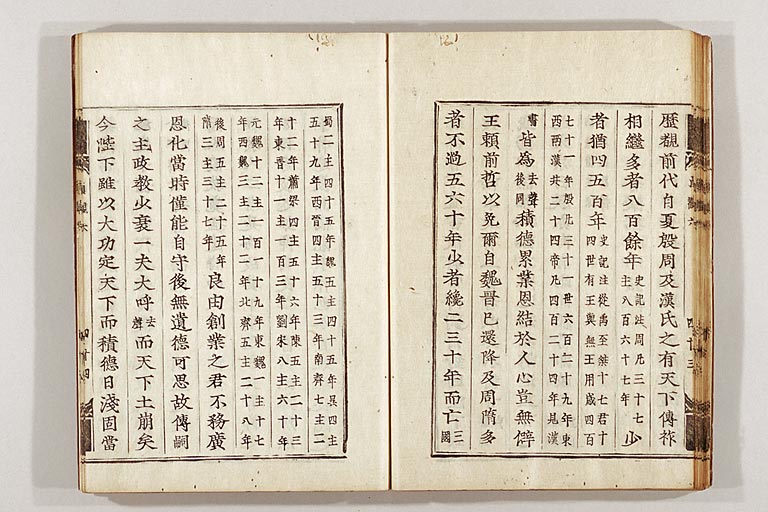 歷觀前代自夏殷周及漢氏之有天下傳祚
相繼多者八百餘年史記注周凡三十七主八百六十七年少
者猶四五百年史記注從禹至桀十七君十四世有王與無王用歲四百
七十一年殷凡三十一世六百二十九年東西兩漢共二十四帝凡四百二十四年見漢
書皆為去聲後同積德累業恩結於人心豈無僻
王賴前哲以免爾自魏晉已還降及周隋多
者不過五六十年少者纔二三十年而亡三國
蜀二主四十五年魏五主四十五年吳四主五十九年西晉四主五十三年南齊七主二
十二年蕭梁四主五十六年陳五主二十三年東晉十一主一百三年劉宋八主六十年
元魏十二主一百一十九年東魏一主十七年西魏三主二十二年北齊五主二十八年
後周五主二十五年隋三主三十七年良由創業之君不務廣
恩化當時僅能自守後無遺德可思故傳嗣
之主政教少衰一夫大呼去聲而天下土崩矣
今陛下雖以大功定天下而積德日淺固當